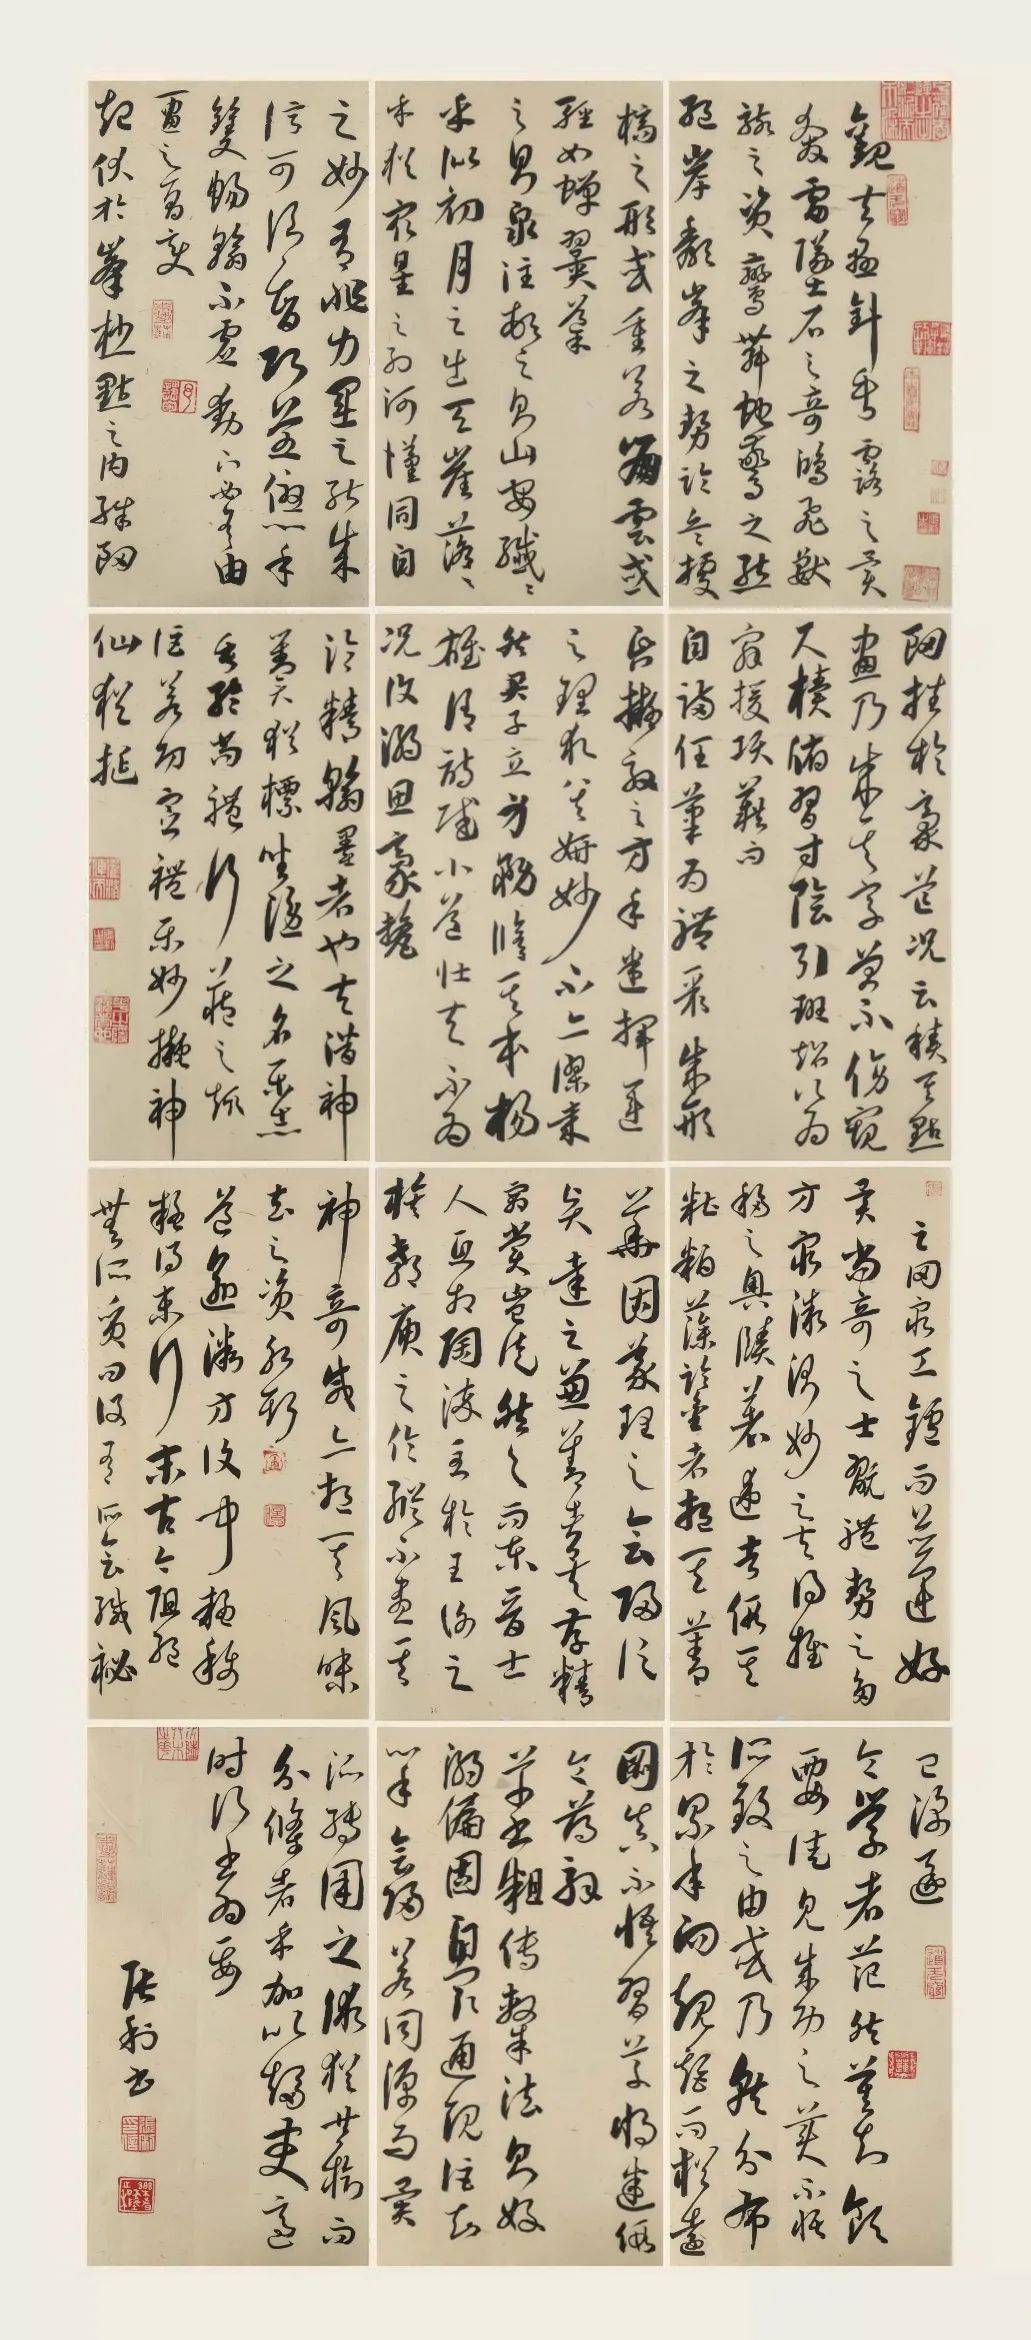 觀夫懸針垂露之異
奔雷墜石之奇鴻飛獸
駭之資鸞舞蛇驚之態
絕岸頹峯之勢臨危據
槁之形或重若崩雲或
輕如蟬翼導
之則泉注頓之則山安纖〃
乎似初月之出天崖落〃
乎猶眾星之列河漢同自
之妙有非力運之能成
信可謂智巧兼優心手
雙暢翰不虛動下必有由
一畫之間變
起伏於峯杪點之內殊衄
衄挫於豪芒況云積其點
畫乃成其字曾不傍窺
尺牘俯習寸陰引班超以為
辭援項籍而
自滿任筆為體聚成形
昏擬效之方手迷揮運
之理求其妍妙不亦謬哉
然君子立身務脩其本楊
雄謂詩賦小道壯夫不為
況復溺思豪釐
淪精翰墨者也夫潛神
對奕猶標坐隱之名樂志
垂綸尚體行藏之趣
詎若功定禮樂妙擬神
仙猶埏
之罔窮工鑪而並運好
異尚奇之士翫體勢之多
方窮微測妙之夫得推
移之奧賾著述者假其
糟粕藻鑒者挹其菁
華固義理之會歸信
賢達之兼善者矣存精
寓賞豈徒然與而東晉士
人互相陶淬至於王謝之
族郗庾之倫縱不盡其
神奇咸亦挹其風味
去之滋永斯
道愈微方復聞疑稱疑
得末行末古今阻絕
無所質問設有所會緘祕
已深遂
令學者茫然莫知領
要徒見成功之美不悟
所致之由或乃就分布
於累年向規矩而猶遠
圖真不悟習草將迷假
令薄解
草書粗傳隸法則好
溺偏固自閡通規詎知
心手會歸若同源而異
派轉用之術猶共樹而
分條者乎加以趨變適
時行書為要
張利書